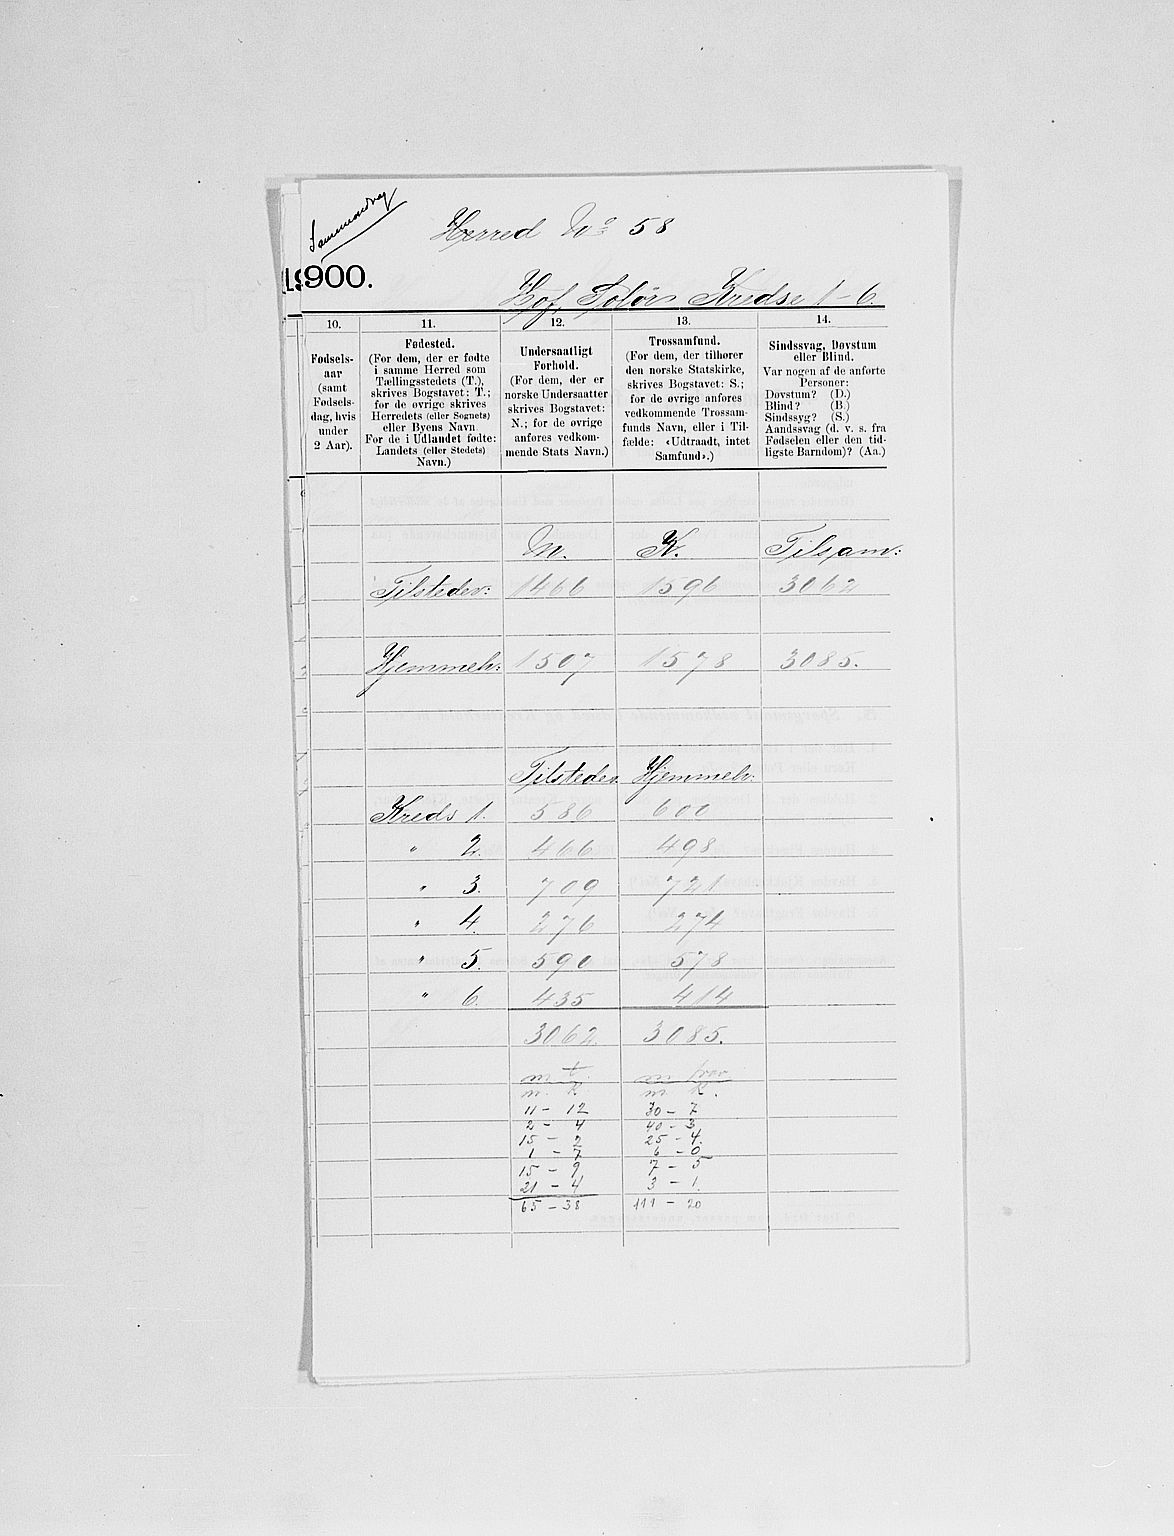 Sammendrag
Herred No 58
1900.
Hof, Solør. Kredse 1-6.
10. 11. 12. 13. 14.
Fødsels-
aar
(samt
Fødsels-
dag, hvis
under
2 Aar).
Fødested.
(For dem, der er fødte
i samme Herred som
Tællingsstedets (T.),
skrives Bogstavet: T.;
for de øvrige skrives
Herredets (eller Sognets)
eller Byens Navn.
For de i Udlandet fødte:
Landets (eller Stedets)
Navn.)
Undersaatligt
Forhold.
(For dem, der er
norske Undersaatter
skrives Bogstavet:
N.; for de øvrige
anføres vedkom-
mende Stats Navn.)
Trossamfund.
(For dem, der tilhører
den norske Statskirke,
skrives Bogstavet: S.;
for de øvrige anføres
vedkommende Trossam-
funds Navn, eller i Til-
fælde: «Udtraadt, intet
Samfund».)
Sindssvag, Døvstum
eller Blind.
Var nogen af de anførte
Personer:
Døvstum? (D.)
Blind? (B.)
Sindssyg? (S.)
Aandssvag (d. v. s. fra
Fødselen eller den tid-
ligste Barndom)? (Aa.)
M. K. Tilsam:
Tilstedev: 1466 1596 3062
Hjemmeh: 1507 1578 3085.
Tilstedev. Hjemmeh:
Kreds 1. 586 600
" 2. 466 498
" 3. 709 721
" 4. 276 274
" 5. 590 578
" 6. 435 414
3062. 3085.
m t. m frav
m. k m k.
11 - 12 30 - 7
2 - 4 40 - 3
15 - 2 25 - 4.
1 - 7 6 - 0
15 - 9 7 - 5
21 - 4 3 - 1.
65 - 38 111 - 20